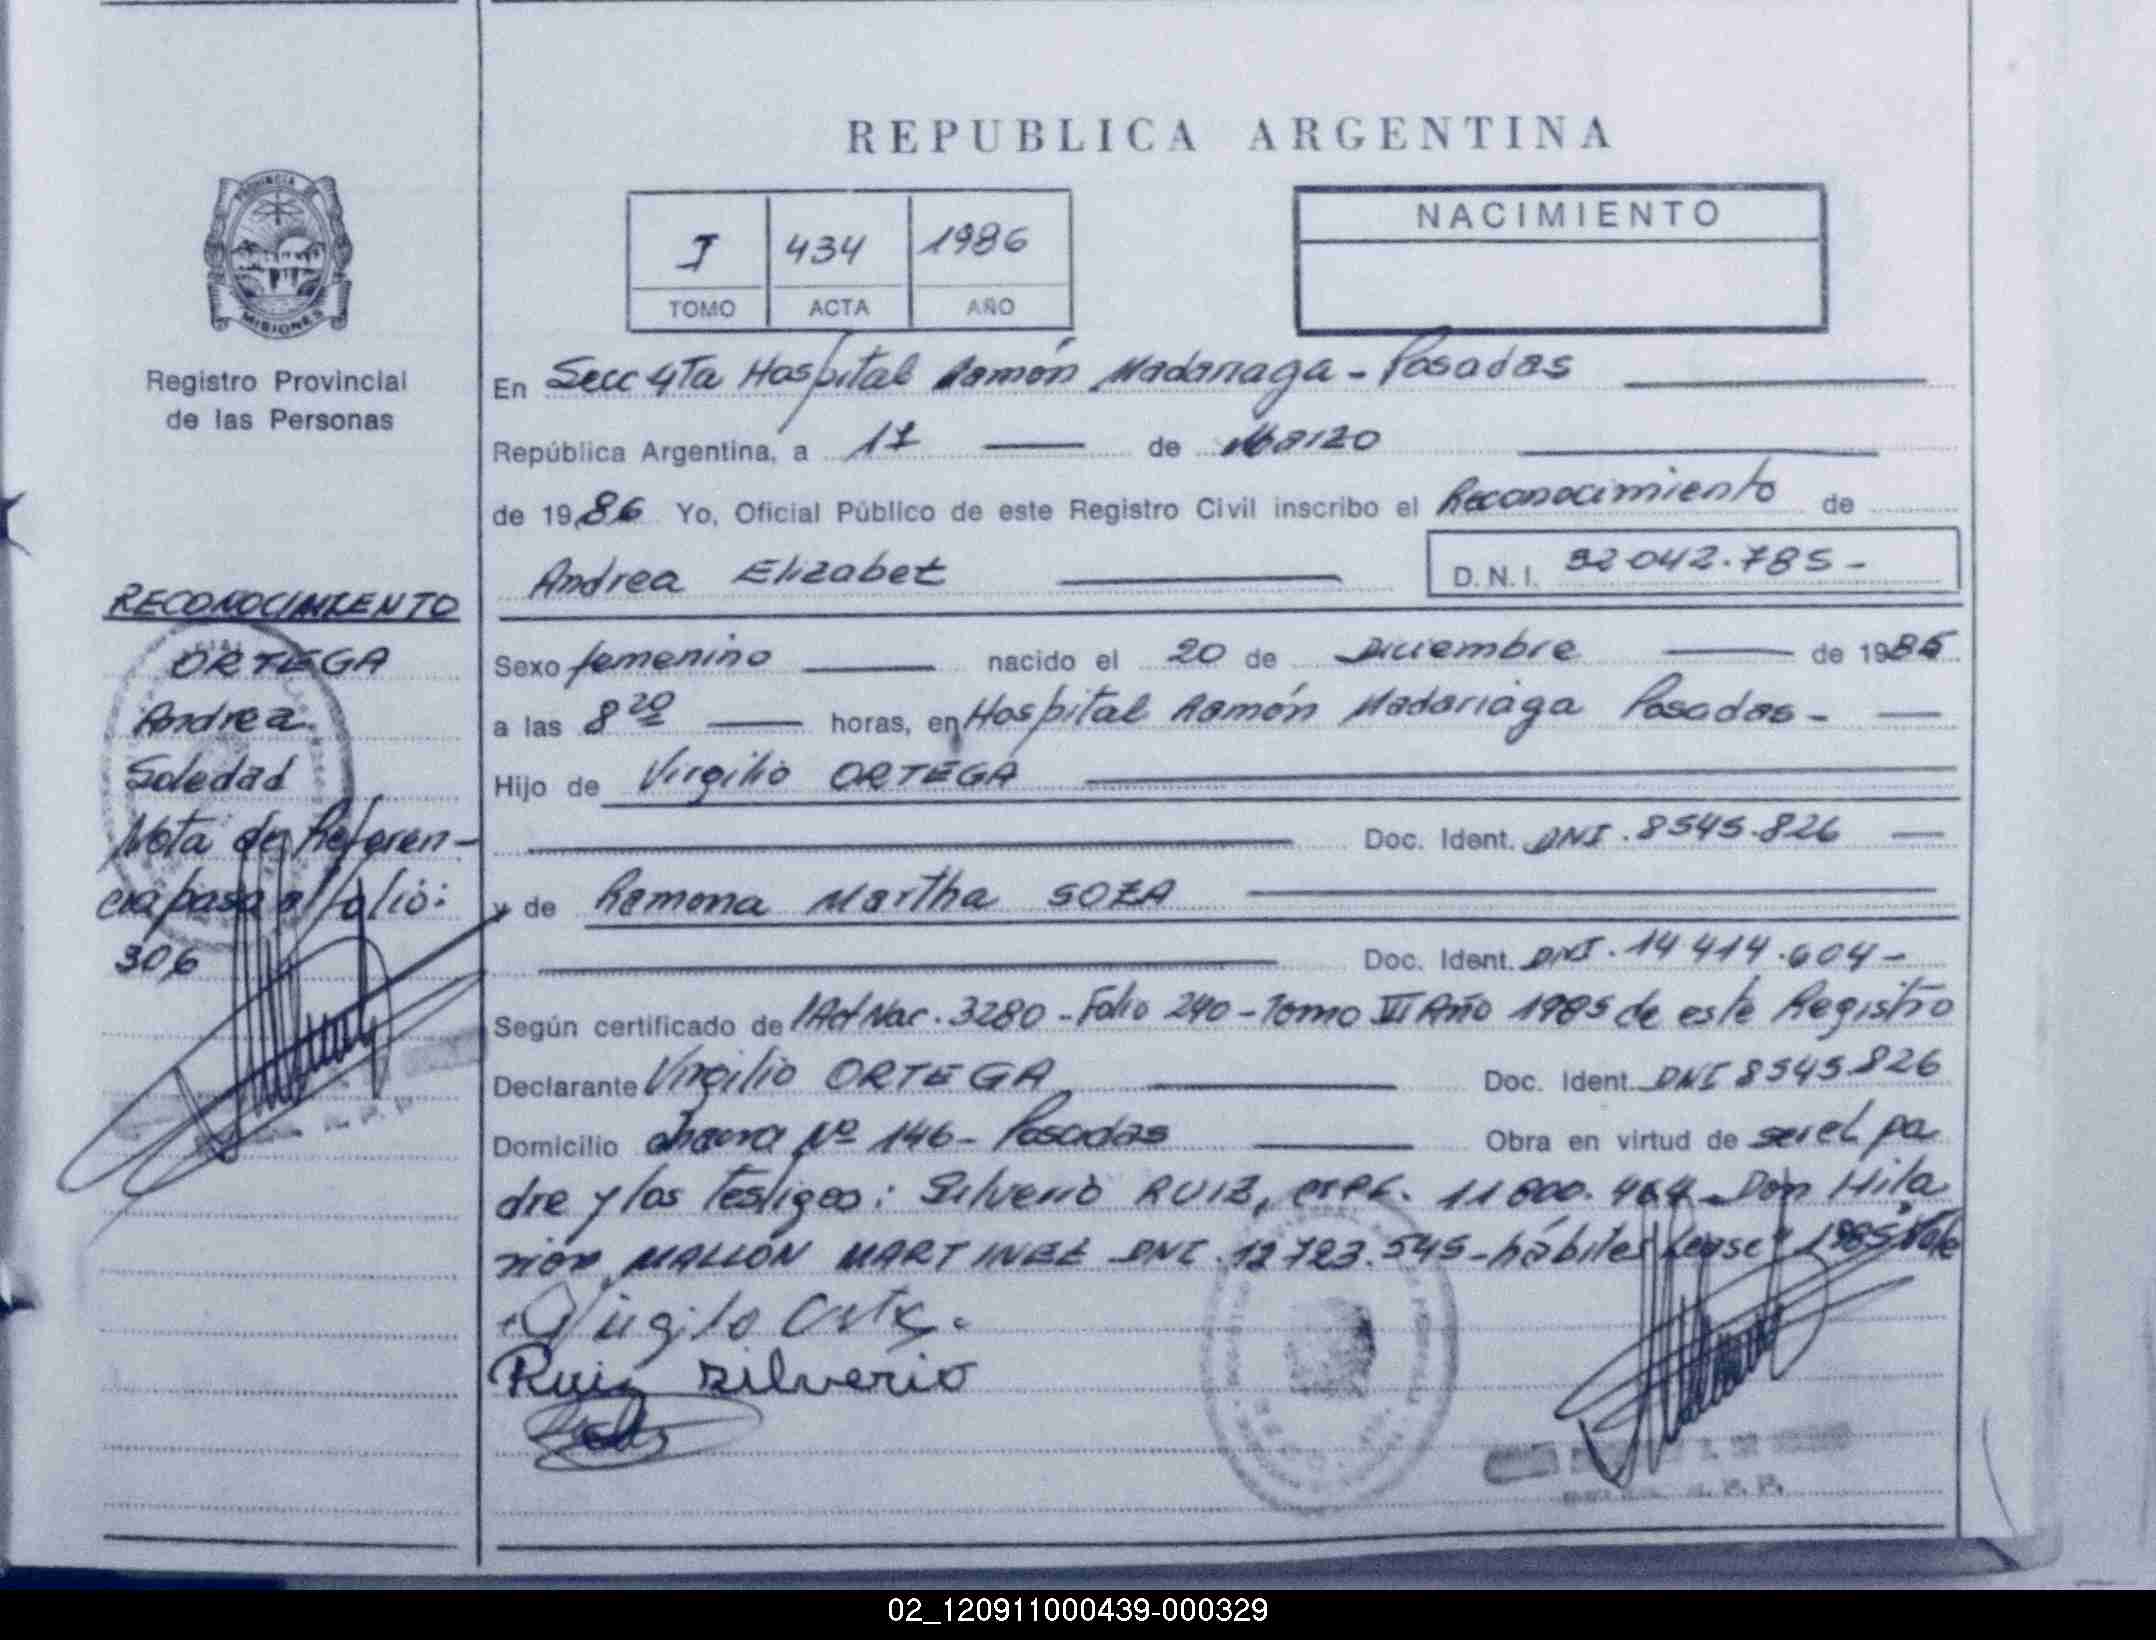 REPUBLICA ARGENTINA
PROVINCIA DE
MISIONES
Registro Provincial
de las Personas
I 434 1986
TOMO ACTA AÑO
NACIMIENTO
En Secc 4ta Hospital Ramón Madariaga - Posadas
República Argentina, a 17 de Marzo
de 1986 Yo, Oficial Público de este Registro Civil inscribo el Reconocimiento de
Andrea Elizabet D.N.I. 32 042.785-
RECONOCIMIENTO
ORTEGA
Andrea
Soledad
Nota de Referen-
cia pasa al folio:
306
Sexo femenino nacido el 20 de Diciembre de 1985
a las 8 20 horas, en Hospital Ramón Madariaga Posadas-
Hijo de Virgilio ORTEGA
Doc. Ident. DNI. 8545.826
y de Ramona Martha SOZA
Doc. Ident. DNI. 14 414.604-
Según certificado de Nac. 3280 - Folio 240 - Tomo VII Año 1985 de este Registro
Declarante Virgilio ORTEGA Doc. Ident. DNI 8545.826
Domicilio chacra Nº 146- Posadas Obra en virtud de ser el pa
dre y los testigos: Silverio RUIZ, 11 800. Don Hila
rión MALLON MARTINEZ DNI. 12 723.545- hábiles Lease "1985" Vale
Ruiz silverio
02_120911000439-000329